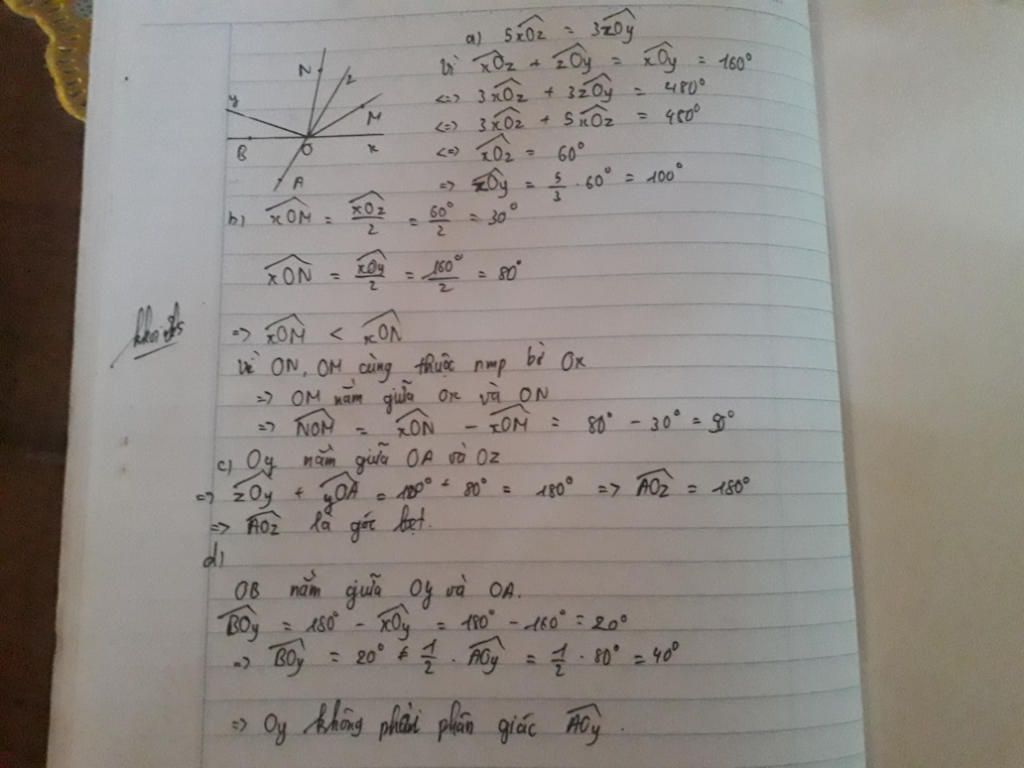 a) 5xOz = 3zOy
Vì xOz + zOy = xOy = 160°
<=> 3xOz + 3zOy = 480°
<=> 3xOz + 5xOz = 480°
<=> xOz = 60°
=> zOy = 5/3 . 60° = 100°
N
z
y
M
B
O
x
A
b) xOM = xOz/2 = 60°/2 = 30°
xON = xOy/2 = 160°/2 = 80°
=> xOM < xON
Vì ON, OM cùng thuộc nmp bờ Ox
=> OM nằm giữa Ox và ON
=> NOM = xON - xOM = 80° - 30° = 50°
c) Oy nằm giữa OA và Oz
=> zOy + yOA = 100° + 80° = 180° => AOz = 180°
=> AOz là góc bẹt.
d)
OB nằm giữa Oy và OA.
BOy = 180° - xOy = 180° - 160° = 20°
=> BOy = 20° ≠ 1/2 . AOy = 1/2 . 80° = 40°
=> Oy không phải phân giác AOy.